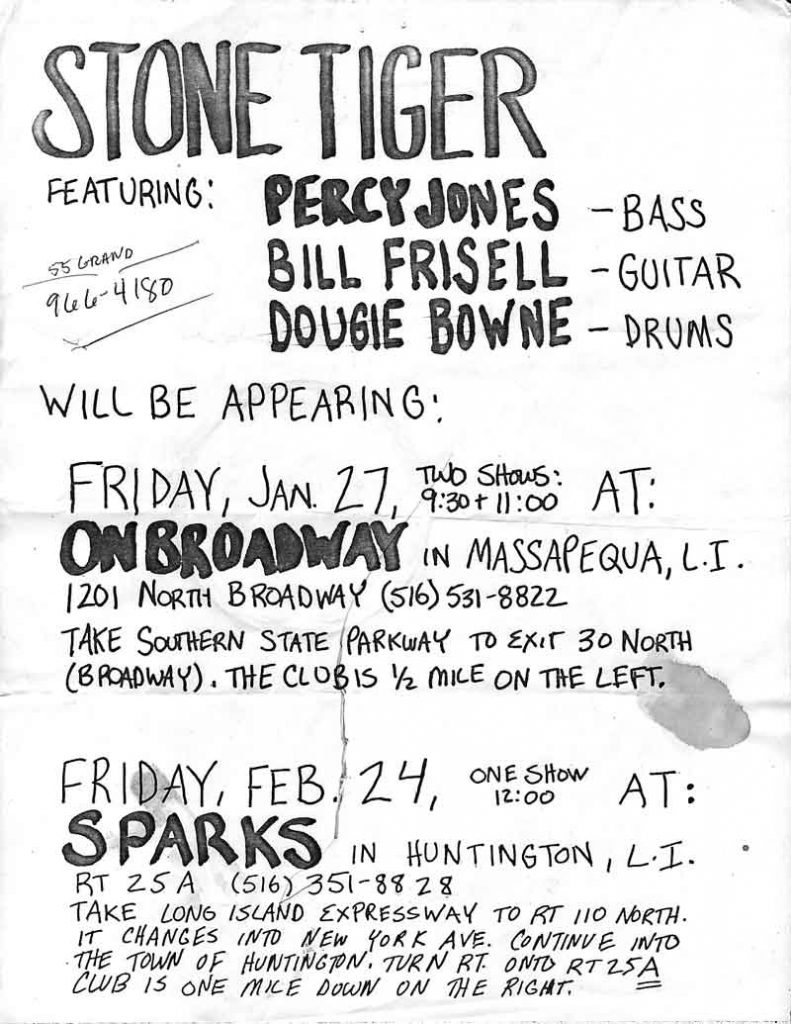 STONE TIGER
FEATURING: PERCY JONES - BASS
55 GRAND
966-4180
BILL FRISELL - GUITAR
DOUGIE BOWNE - DRUMS
WILL BE APPEARING:
FRIDAY, JAN. 27, TWO SHOWS: 9:30 + 11:00 AT:
ON BROADWAY IN MASSAPEQUA, L.I.
1201 NORTH BROADWAY (516) 531-8822
TAKE SOUTHERN STATE PARKWAY TO EXIT 30 NORTH
(BROADWAY). THE CLUB IS 1/2 MILE ON THE LEFT.
FRIDAY, FEB. 24, ONE SHOW 12:00 AT:
SPARKS IN HUNTINGTON, L.I.
RT 25A (516) 351-8828
TAKE LONG ISLAND EXPRESSWAY TO RT 110 NORTH.
IT CHANGES INTO NEW YORK AVE. CONTINUE INTO
THE TOWN OF HUNTINGTON. TURN RT. ONTO RT 25A
CLUB IS ONE MILE DOWN ON THE RIGHT.